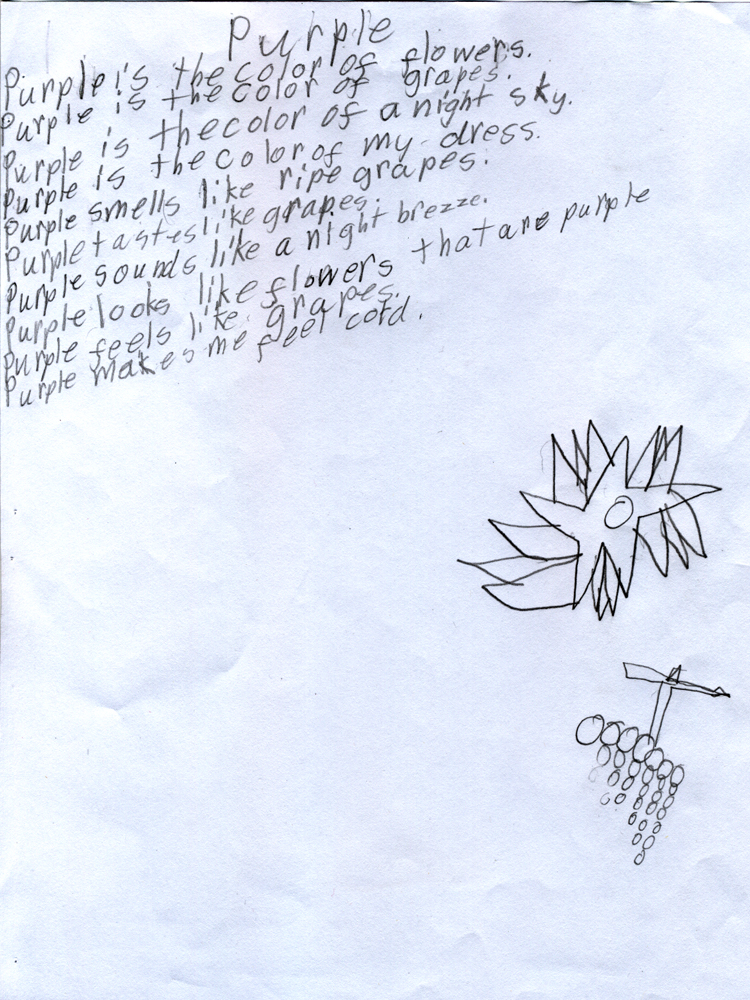 Purple
Purple is the color of flowers.
Purple is the color of grapes.
Purple is the color of a night sky.
Purple is the color of my dress.
Purple smells like ripe grapes.
Purple tastes like grapes.
Purple sounds like a night brezze.
Purple looks like flowers that are purple
Purple feels like grapes.
Purple makes me feel cold.